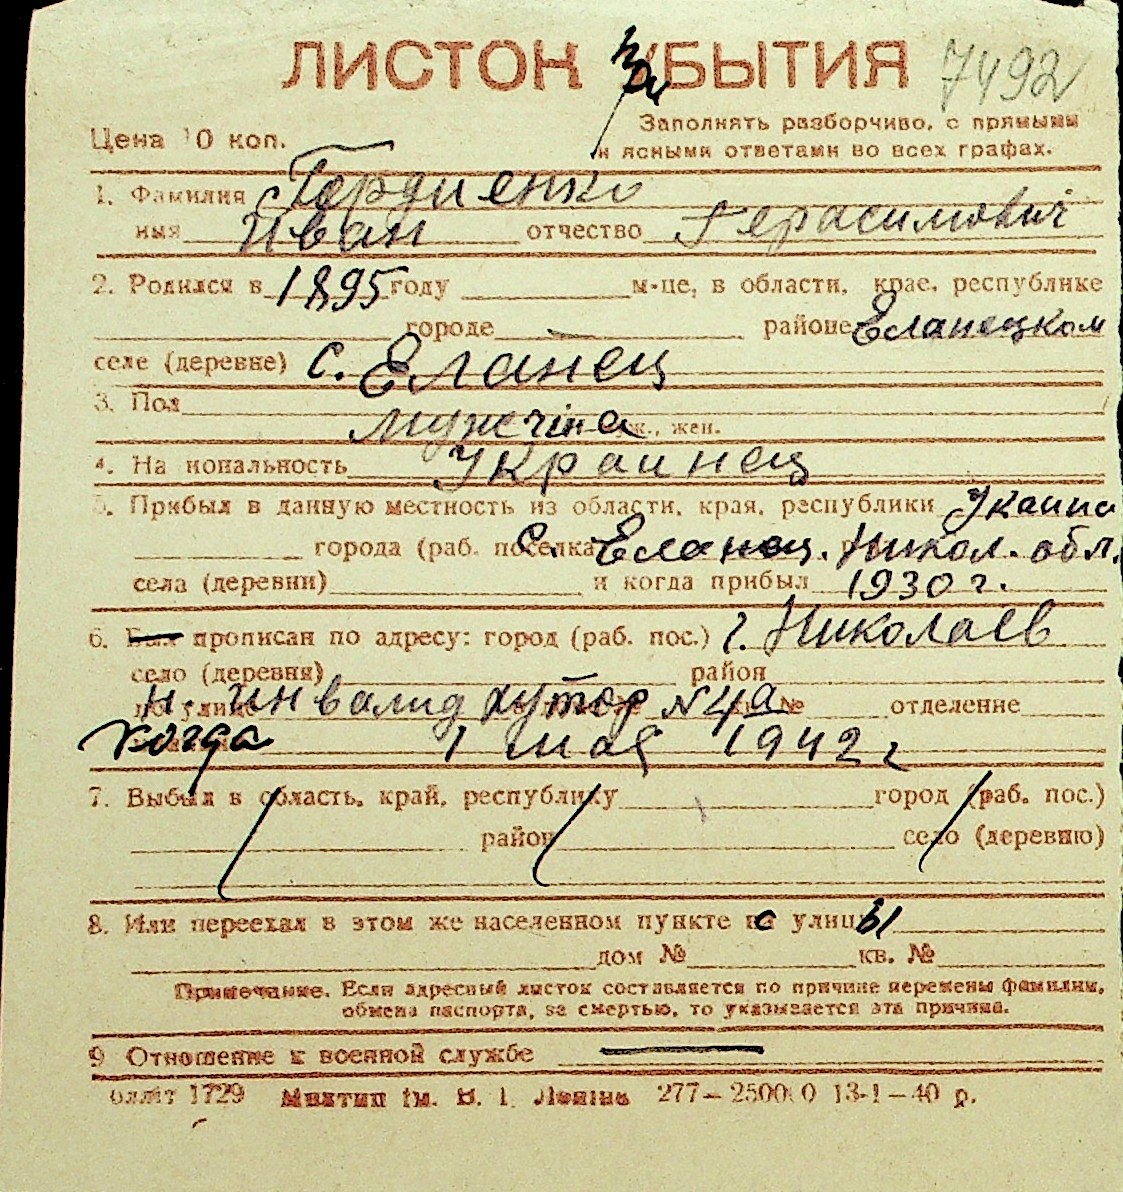 ЛИСТОК при УБЫТИЯ 7492
Цена 10 коп. Заполнять разборчиво, с прямыми
и ясными ответами во всех графах.
1. Фамилия Гордиенко
имя Иван отчество Герасимович
2. Родился в 1895 году м-це, в области, крае, республике
городе районе Еланецком
селе (деревне) с. Еланец
3. Пол
мужчіна муж., жен.
4. Национальность Украинец
5. Прибыл в данную местность из области, края, республики Укаина
города (раб. поселка с. Еланец. Никол. обл.
села (деревни) и когда прибыл 1930 г.
6. Был прописан по адресу: город (раб. пос.) г. Николаев
село (деревня) район
по улице н. инвалид хутор № 4а № отделение
когда 1 мая 1942 г
7. Выбыл в область, край, республику город (раб. пос.)
район село (деревню)
8. Или переехал в этом же населенном пункте с улицы
дом № кв. №
Примечание. Если адресный листок составляется по причине перемены фамилии,
обмена паспорта, за смертью, то указывается эта причина.
9 Отношение к военной службе —
1729 Миктип ім. В. І. Леніна 277—25000 13-1—40 р.